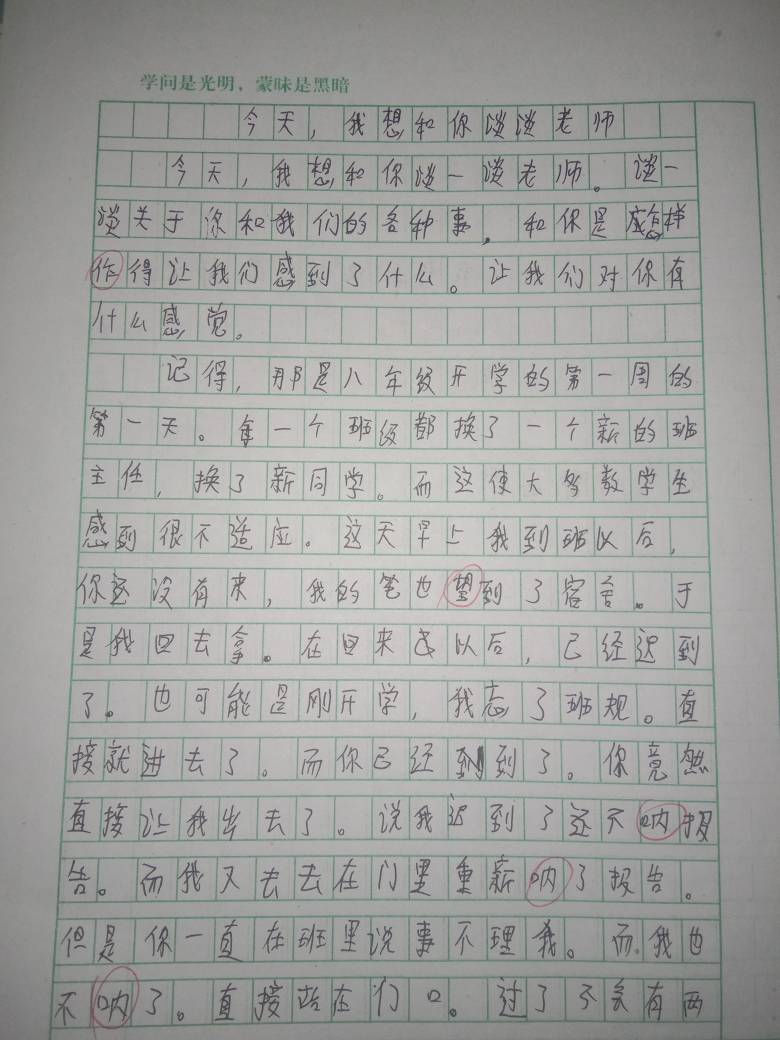 学问是光明，蒙昧是黑暗
今天，我想和你谈谈老师
今天，我想和你谈一谈老师。谈一
谈关于你和我们的各种事，和你是应怎样
作得让我们感到了什么。让我们对你有
什么感觉。
记得，那是八年级开学的第一周的
第一天。每一个班级都换了一个新的班
主任，换了新同学。而这使大多数学生
感到很不适应。这天早上我到班以后，
你还没有来，我的笔也望到了宿舍。于
是我回去拿。在回来以后，已经迟到
了。也可能是刚开学，我忘了班规。直
接就进去了。而你已经到了。你竟然
直接让我出去了。说我迟到了还不呐报
告。而我又去去在门里重新呐了报告。
但是你一直在班里说事不理我。而我也
不呐了。直接站在们口。过了不会有两